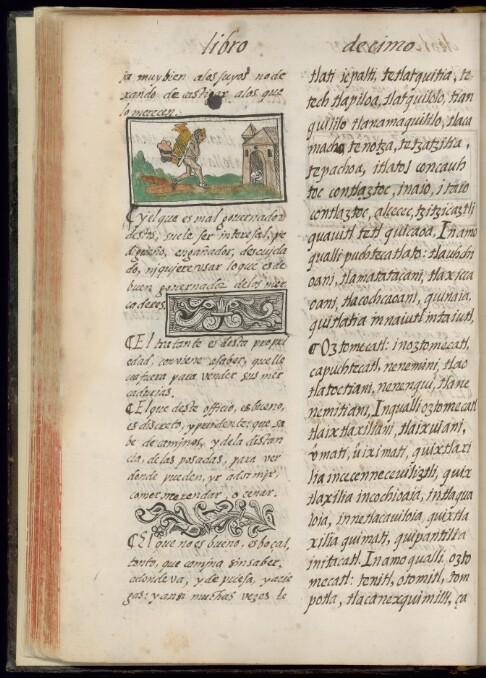 libro
decimo
ja muy bien a los suyos no de
xando de castigar a los que
lo merecen.
Cyel que es mal governador
destos, suele ser interesal, pe
digueño, engañador, descuyda
do, ni quiere usar lo que es de
buen governador de los mer
caderes.
CEl tratante es desta propri
edad, conviene a saber, que lle
va fuera para vender sus mer
cadurias.
CEl que deste officio, es bueno,
es discreto, y prudente: que sa
be de caminos, y de la distan
cia, de las posadas, para ver
donde pueden, yr a dormir,
comer, merendar, o cenar.
CEl que no es bueno, es boçal,
tonto, que camina sin saber,
adonde va, y de priesa, y a cie
gas: y ansi muchas vezes le
tlati icpalti, tetlatquitia, te
tech tlapiloa, tlatquililo, tlan
quililo tlanamaquililo, tlaca
macho tenotza, tetzatzilia,
tepachoa, itlatol concauh
toc contlaztoc, inaio, itato
contlaztoc, alcecec, tzitzicaztli
quavitl tetl quicaoa. In amo
qualli puchtecatlato: tlauhchi
oani, tlamatataconi, tlaxicca
oani, tlacochcaoani, quinaia,
quitlatia in naiutl in taiutl.
COztomecatl: in oztomecatl
ca puchtecatl, nenemini, tlao
tlatoctiani, nenenqui, tlane
nemitiani. In qualli oztomecatl
tlaixtlaxiliani, tlaixiulani,
vmati, uiximati, quixtlaxi
lia in cecenneceuiliztli, quix
tlaxilia in cochioaia, in tlaqua
loia, in netlacaviloia, quixtla
xilia quimati, quipantilia
in itacatl. In amo qualli: ozto
mecatl: tenitl, otomitl, tom
potla, tlacanexquimilli, ça